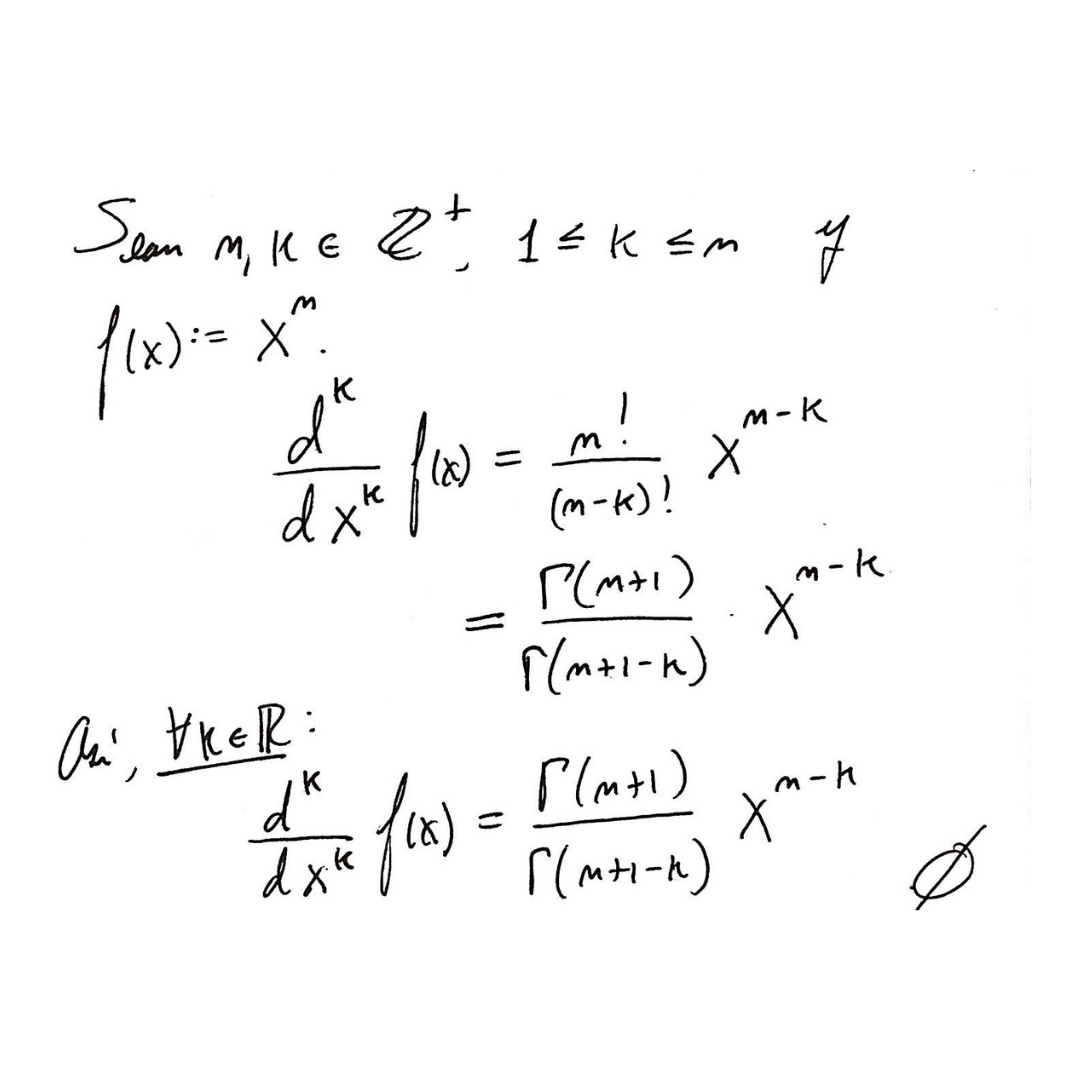 Sean n, k ∈ ℤ⁺, 1 ≤ k ≤ n y
f(x) := xⁿ.
d^k/dx^k f(x) = n!/(n-k)! x^(n-k)
= Γ(n+1)/Γ(n+1-k) · x^(n-k)
Así, ∀k∈ℝ:
d^k/dx^k f(x) = Γ(n+1)/Γ(n+1-k) x^(n-k)
∅